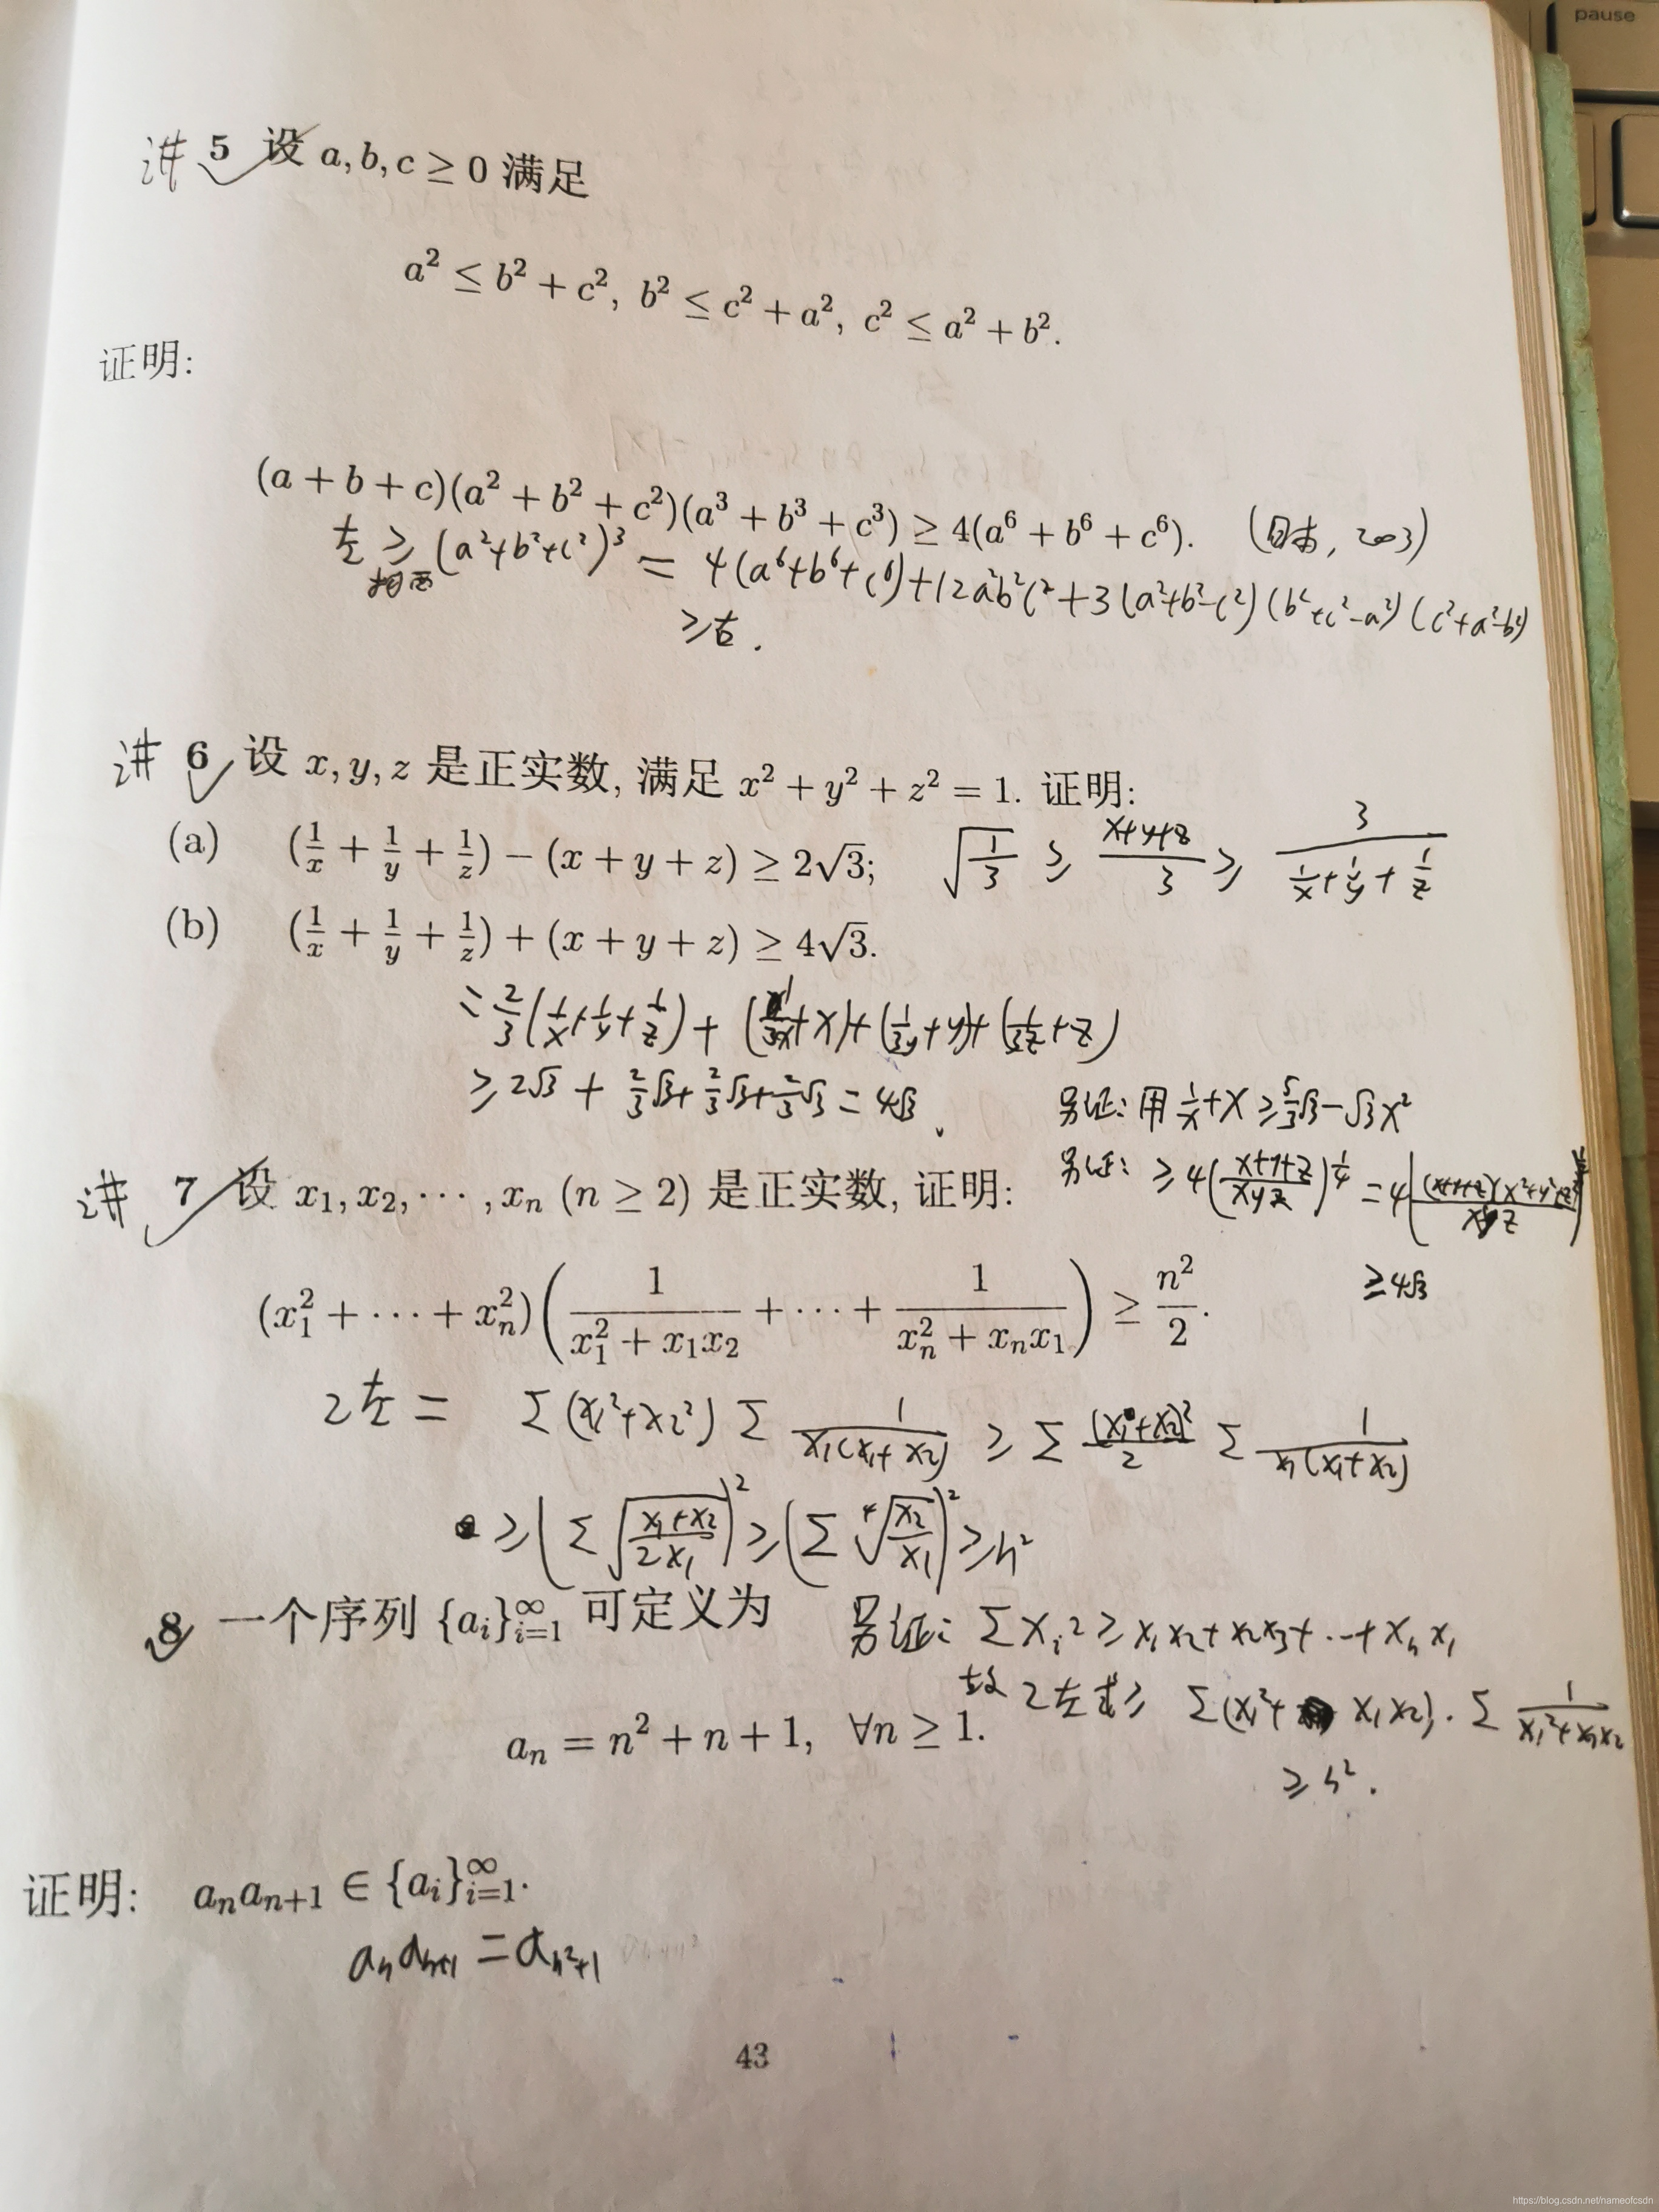 pause
讲 5 设 a, b, c ≥ 0 满足
a² ≤ b² + c², b² ≤ c² + a², c² ≤ a² + b².
证明:
(a + b + c)(a² + b² + c²)(a³ + b³ + c³) ≥ 4(a⁶ + b⁶ + c⁶). (日本, 2003)
左 ≥ (a²+b²+c²)³ = 4(a⁶+b⁶+c⁶)+12a²b²c²+3(a²+b²-c²)(b²+c²-a²)(c²+a²-b²)
柯西
≥右.
讲 6 设 x, y, z 是正实数, 满足 x² + y² + z² = 1. 证明:
(a) (1/x + 1/y + 1/z) − (x + y + z) ≥ 2√3; √(1/3) ≥ (x+y+z)/3 ≥ 3/(1/x+1/y+1/z)
(b) (1/x + 1/y + 1/z) + (x + y + z) ≥ 4√3.
= 2/3(1/x+1/y+1/z) + (1/3x+x)+(1/3y+y)+(1/3z+z)
≥ 2√3 + 2/3√3+2/3√3+2/3√3 = 4√3.
另证: 用 1/x+x ≥ 5/3√3-√3x²
另证: ≥ 4((x+y+z)/xyz)^(1/4) = 4((x+y+z)(x²+y²+z²)/xyz)^(1/4)
≥4√3
讲 7 设 x₁, x₂, ⋯ , xₙ (n ≥ 2) 是正实数, 证明:
(x₁² + ⋯ + xₙ²)(1/(x₁² + x₁x₂) + ⋯ + 1/(xₙ² + xₙx₁)) ≥ n²/2.
2左 = Σ(x₁²+x₂²) Σ 1/(x₁(x₁+x₂)) ≥ Σ (x₁+x₂)²/2 Σ 1/(x₁(x₁+x₂))
≥ (Σ√((x₁+x₂)/2x₁))² ≥ (Σ ⁴√(x₂/x₁))² ≥ n²
8 一个序列 {aᵢ}∞ᵢ₌₁ 可定义为
另证: Σxᵢ² ≥ x₁x₂+x₂x₃+⋯+xₙx₁
故 2左式≥ Σ(x₁²+ x₁x₂)·Σ 1/(x₁²+x₁x₂)
≥ n².
aₙ = n² + n + 1, ∀n ≥ 1.
证明: aₙaₙ₊₁ ∈ {aᵢ}∞ᵢ₌₁.
aₙaₙ₊₁ = a_{n²+1}
43
https://blog.csdn.net/nameofcsdn